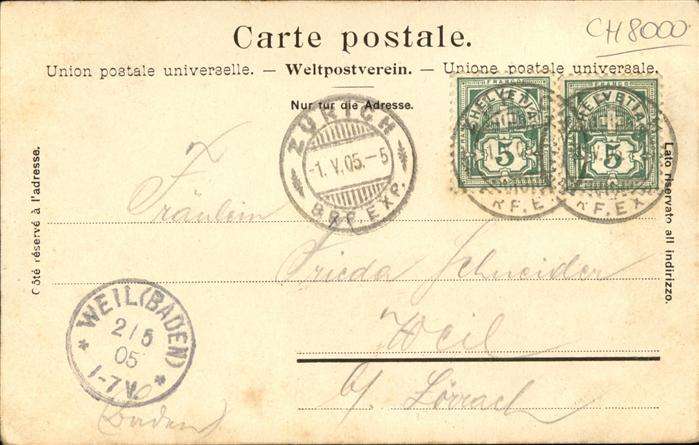 CH8000
Carte postale.
Union postale universelle. — Weltpostverein. — Unione postale universale.
Nur für die Adresse.
Côté réservé à l'adresse.
Lato riservato all indirizzo.
ZÜRICH
-1.V.05.-5
BRF.EXP.
FRANCO FRANCO
HELVETIA HELVETIA
5 5
RF.E RF.EX
Fräulein
Frieda Schneider
Weil
b/ Lörrach
(Baden)
WEIL (BADEN)
2/5
05
1-7V.